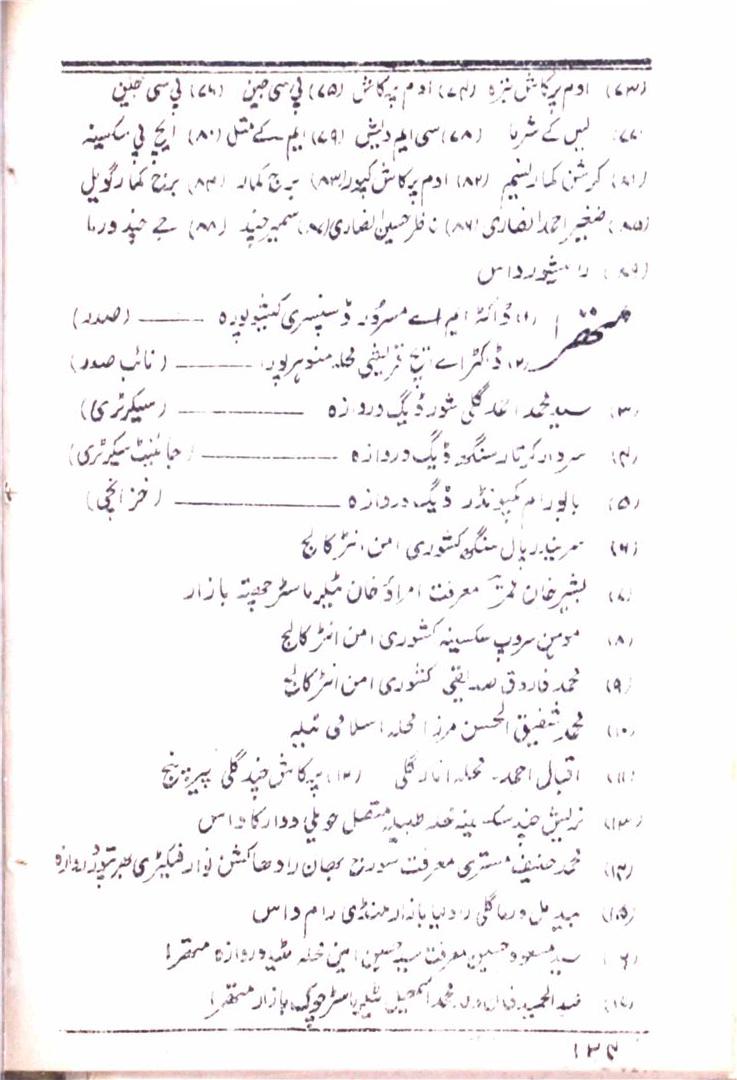 (۷۳) اوم پرکاش نیزہ (۷۴) اوم پرکاش (۷۵) پی سی جین (۷۶) پی سی جین
(۷۷) ایس کے شرما (۷۸) سی ایم دلیش (۷۹) ایم کے متل (۸۰) ایچ پی سکسینہ
(۸۱) کرشن کمار نسیم (۸۲) اوم پرکاش کپور (۸۳) برج کمار (۸۴) برج کمار گویل
(۸۵) ضغیر احمد انصاری (۸۶) ناظر حسین انصاری (۸۷) سمیر چند (۸۸) جے چند ورما
(۸۹) رامیشور داس
متھرا (۱) ڈاکٹر ایم اے مسرور ڈسپنسری کیشوپورہ ــــــ (صدر)
(۲) ڈاکٹر اے ایچ قریشی محلہ منوہرپورہ ــــــ (نائب صدر)
(۳) سید محمد احمد گلی شور ڈیگ دروازہ ــــــ (سیکرٹری)
(۴) سردار کرتار سنگھ ڈیگ دروازہ ــــــ (جائنٹ سیکرٹری)
(۵) بابو رام کمپونڈر ڈیگ دروازہ ــــــ (خزانچی)
(۶) سریندر پال سنگھ کشوری امن انٹر کالج
(۷) بشیر خان قمر معرفت امراؤ خان ٹیلر ماسٹر چھتہ بازار
(۸) موہن سروپ سکسینہ کشوری امن انٹر کالج
(۹) محمد فاروق صدیقی کشوری امن انٹر کالج
(۱۰) محمد شفیق الحسن مرزا محلہ اسلامی ٹیلہ
(۱۱) اقبال احمد۔ محلہ انار گلی (۱۲) پرکاش چند گلی پیرپنچ
(۱۳) نریش چند سکسینہ محلہ متصل حویلی دوارکا داس
(۱۴) محمد حنیف مستری معرفت سورج بھان رادھاکشن نوار فیکٹری بھرتپور دروازہ
(۱۵) ورما گلی راولیا بازار منڈی رام داس
(۱۶) سید مسعود حسین معرفت سید حسین امین محلہ مٹیہ دروازہ متھرا
(۱۷) عبدالحمید خان محمد اسمعیل ٹیلر ماسٹر چوک بازار متھرا
۱۳۹